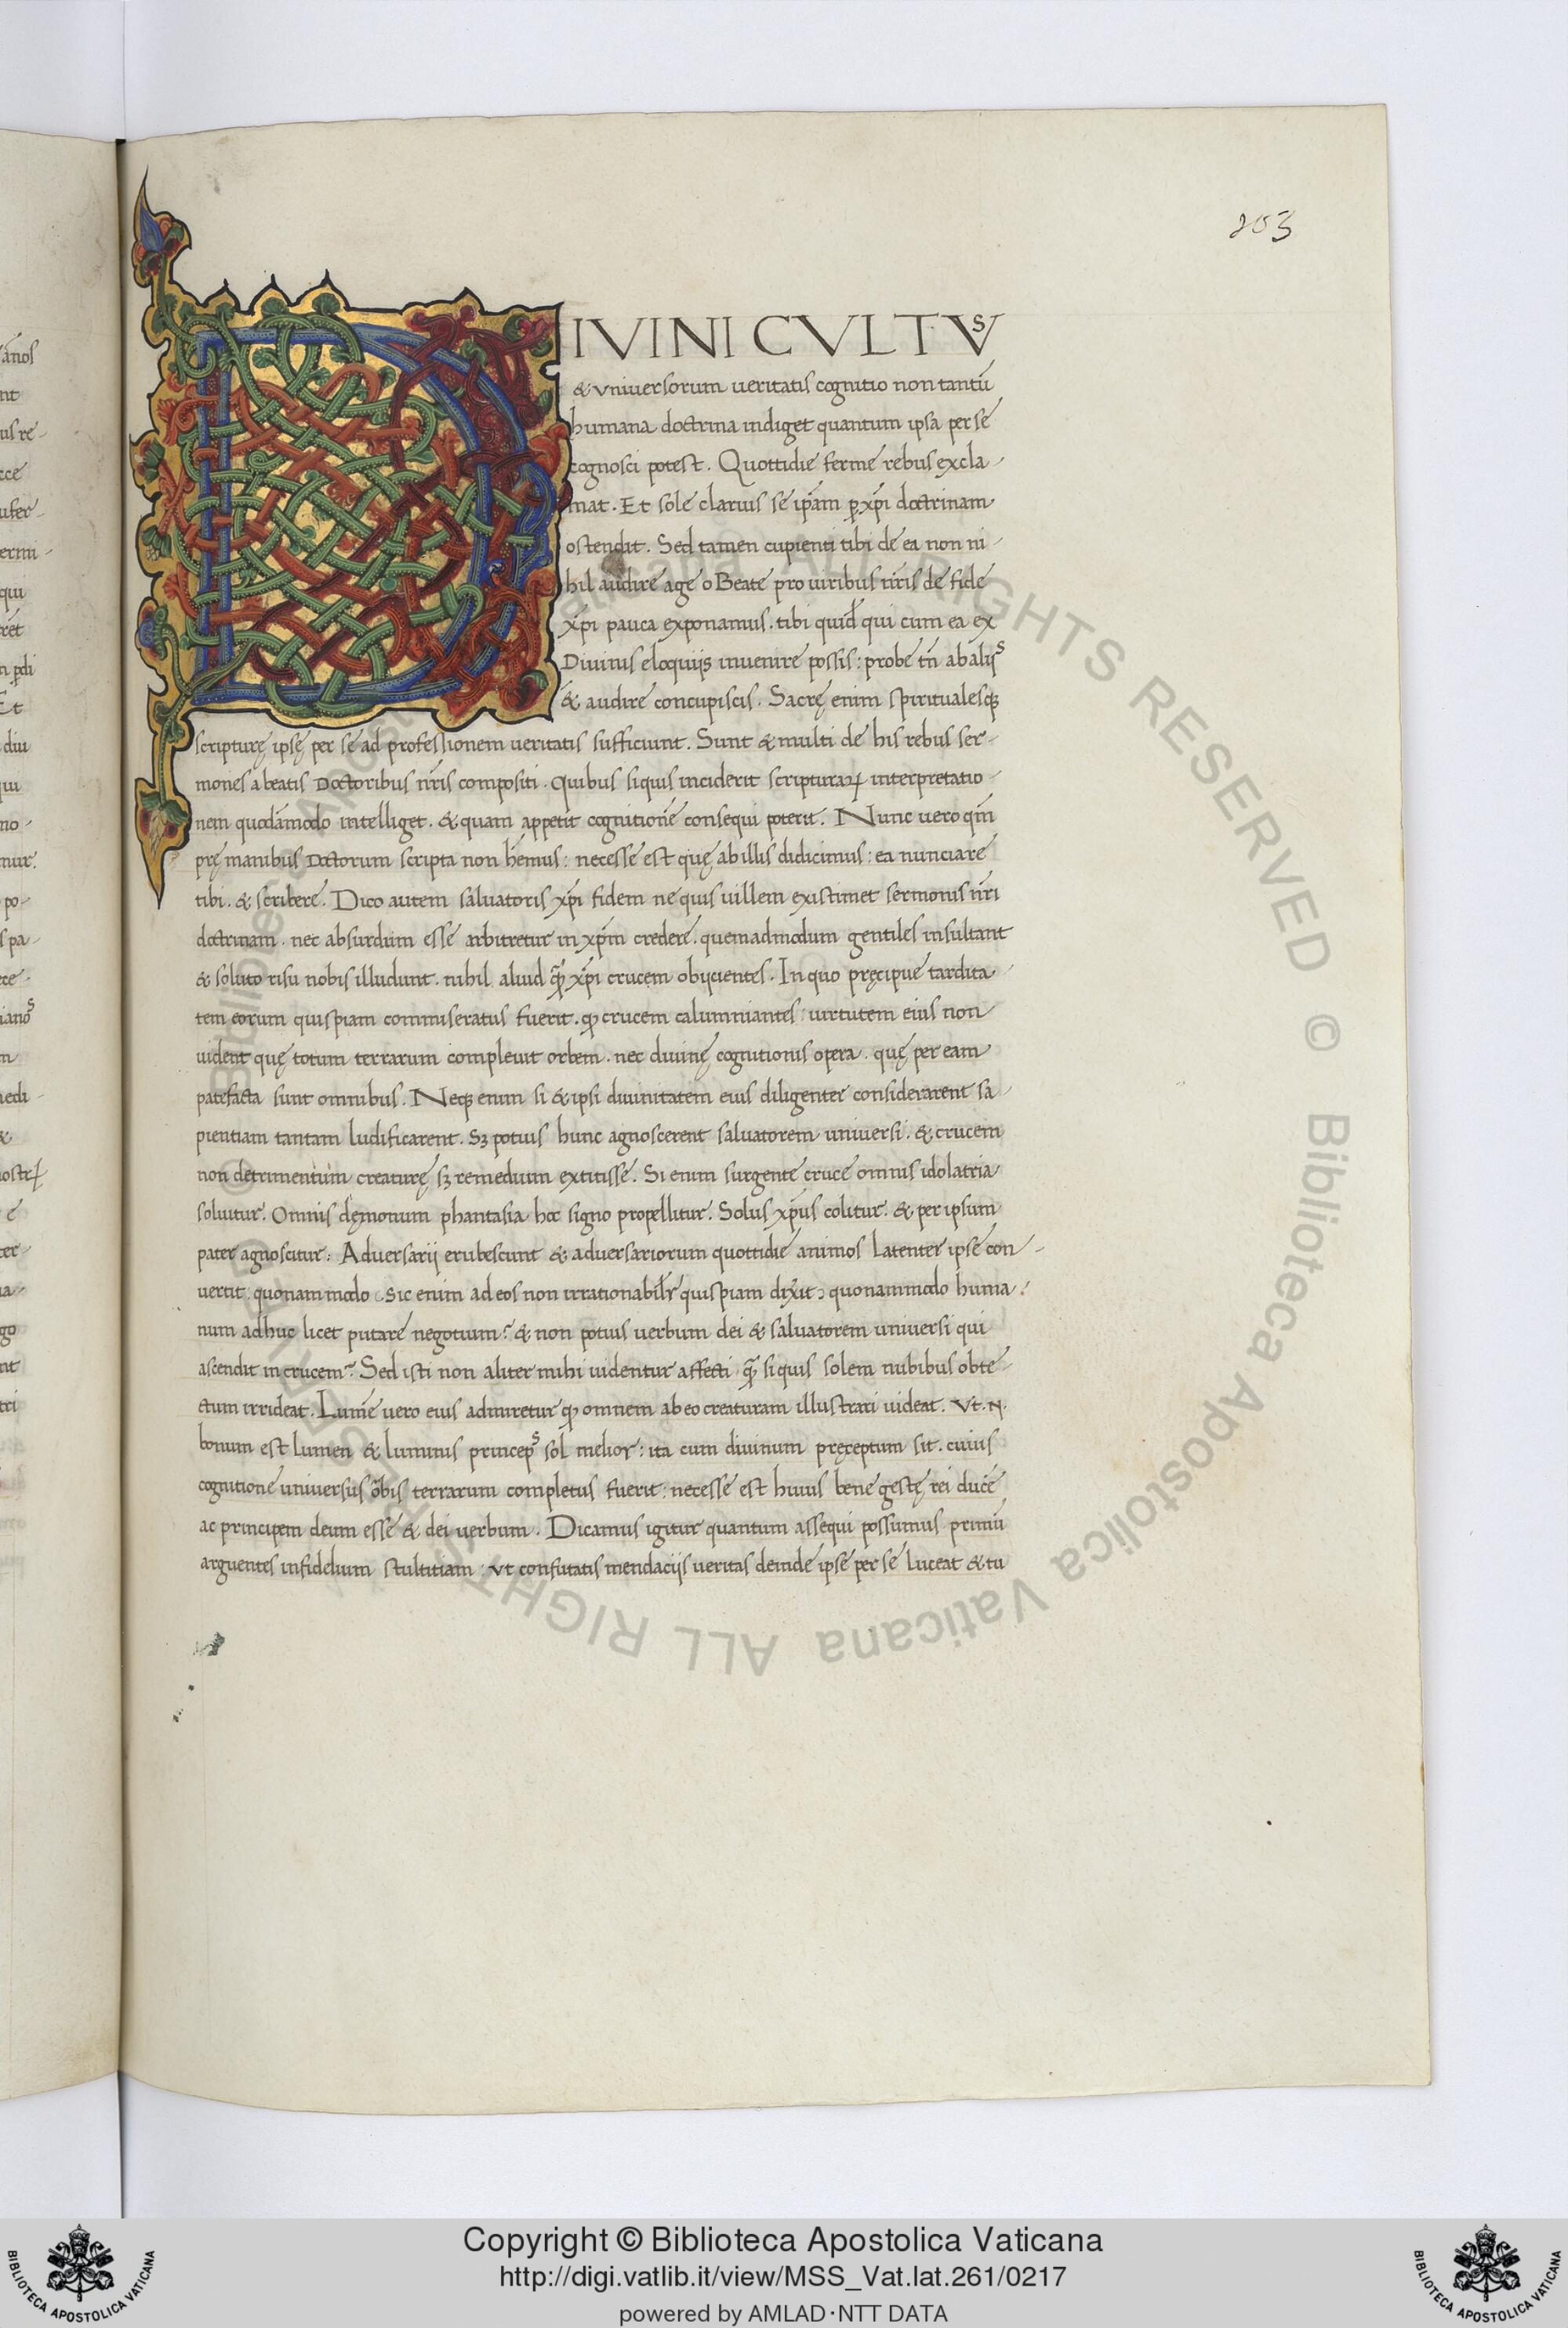 203
DIVINI CVLTVS
& vniuersorum ueritatis cognitio non tantū
humana doctrina indiget quantum ipsa per se
cognosci potest. Quottidie ferme rebus excla-
mat. Et sole clarius se ip̄am ꝑ xp̄i doctrinam
ostendit. Sed tamen cupienti tibi de ea non ni-
hil audire age o Beate pro uiribus nr̄is de fide
xp̄i pauca exponamus. tibi quid̄ qui cum ea ex
Diuinis eloquijs inuenire possis: probe tn̄ ab alijs
& audire concupiscis. Sacrę enim spiritualesqꝫ
scripturę ipsę per se ad professionem ueritatis sufficiunt. Sunt & multi de his rebus ser-
mones a beatis Doctoribus nr̄is compositi. Quibus siquis inciderit scripturaꝝ interpretatio-
nem quodāmodo intelliget. & quam appetit cognitionē consequi poterit. Nunc uero qm̄
prę manibus Doctorum scripta non hēmus: necesse est quę ab illis didicimus: ea nunciare
tibi. & scribere. Dico autem saluatoris xp̄i fidem ne quis uillem existimet sermonis nr̄i
doctrinam. nec absurdum esse arbitretur in xp̄m credere. quemadmodum gentiles insultant
& soluto risu nobis illudunt. nihil aliud qꝫ̄ xp̄i crucem obijcientes. In quo pręcipue tardita-
tem eorum quispiam commiseratus fuerit. ꝙ crucem calumniantes: uirtutem eius non
uident quę totum terrarum compleuit orbem. nec diuinę cognitionis opera. quę per eam
patefacta sunt omnibus. Neqꝫ enim si & ipsi diuinitatem eius diligenter considerarent sa-
pientiam tantam ludificarent. Sꝫ potius hunc agnoscerent saluatorem uniuersi. & crucem
non detrimentum creaturę sꝫ remedium extitisse. Si enim surgente cruce omnis idolatria
soluitur. Omnis dęmonum phantasia hoc signo propellitur. Solus xp̄us colitur. & per ipsum
pater agnoscitur: Aduersarij erubescunt & aduersariorum quottidie animos latenter ipse con-
uertit: quonammodo. sic enim ad eos non irrationabilr̄ quispiam dixit: quonammodo huma-
num adhuc licet putare negotium? & non potius uerbum dei & saluatorem uniuersi qui
ascendit in crucem? Sed isti non aliter mihi uidentur affecti qꝫ̄ siquis solem nubibus obte-
ctum irrideat. Lumē uero eius admiretur ꝙ omnem ab eo creaturam illustrari uideat. Vt. N.
bonum est lumen & luminis princeps sol melior: ita cum diuinum pręceptum sit. cuius
cognitione uniuersus orbis terrarum completus fuerit: necesse est huius bene gestę rei ducē
ac principem deum esse & dei uerbum. Dicamus igitur quantum assequi possumus primū
arguentes infidelium stultitiam: vt confutatis mendacijs ueritas deinde ipse per se luceat & tu
Copyright © Biblioteca Apostolica Vaticana
http://digi.vatlib.it/view/MSS_Vat.lat.261/0217
powered by AMLAD·NTT DATA
BIBLIOTECA APOSTOLICA VATICANA
BIBLIOTECA APOSTOLICA VATICANA